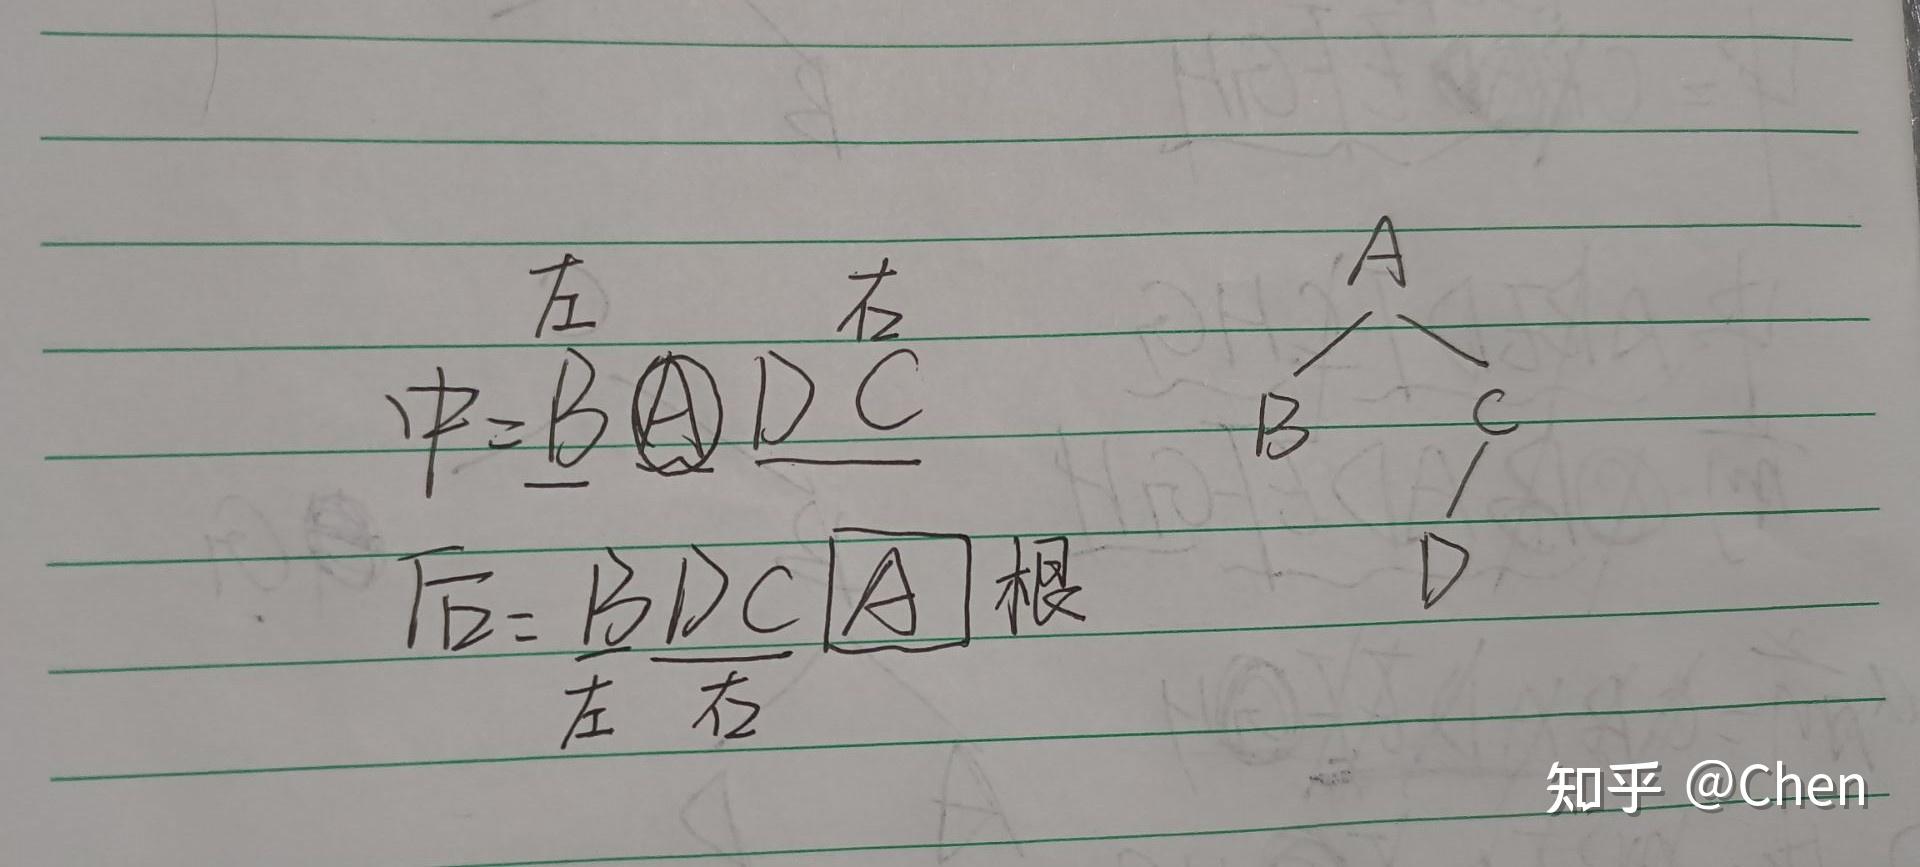 左 右
中=B A D C
后=B D C A 根
左 右
A
B C
D
知乎 @Chen